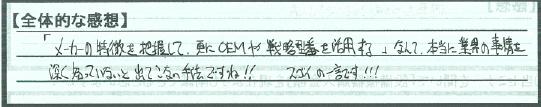 【全体的な感想】
「メーカーの特徴を把握して、更にOEMや戦略型番を活用する」なんて、本当に業界の事情を
深く知っていないと出てこない手法ですね!! スゴイの一言です!!!